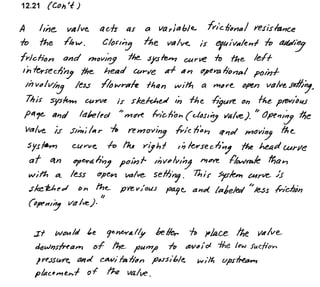 12.21 (Con't)
A line valve acts as a variable frictional resistance
to the flow. Closing the valve is equivalent to adding
friction and moving the system curve to the left
intersecting the head curve at an operational point
involving less flowrate than with a more open valve setting.
This system curve is sketched in the figure on the previous
page and labeled "more friction (closing valve)." Opening the
valve is similar to removing friction and moving the
system curve to the right intersecting the head curve
at an operating point involving more flowrate than
with a less open valve setting. This system curve is
sketched on the previous page and labeled "less friction
(opening valve)."
It would be generally better to place the valve
downstream of the pump to avoid the low suction
pressure and cavitation possible with upstream
placement of the valve.